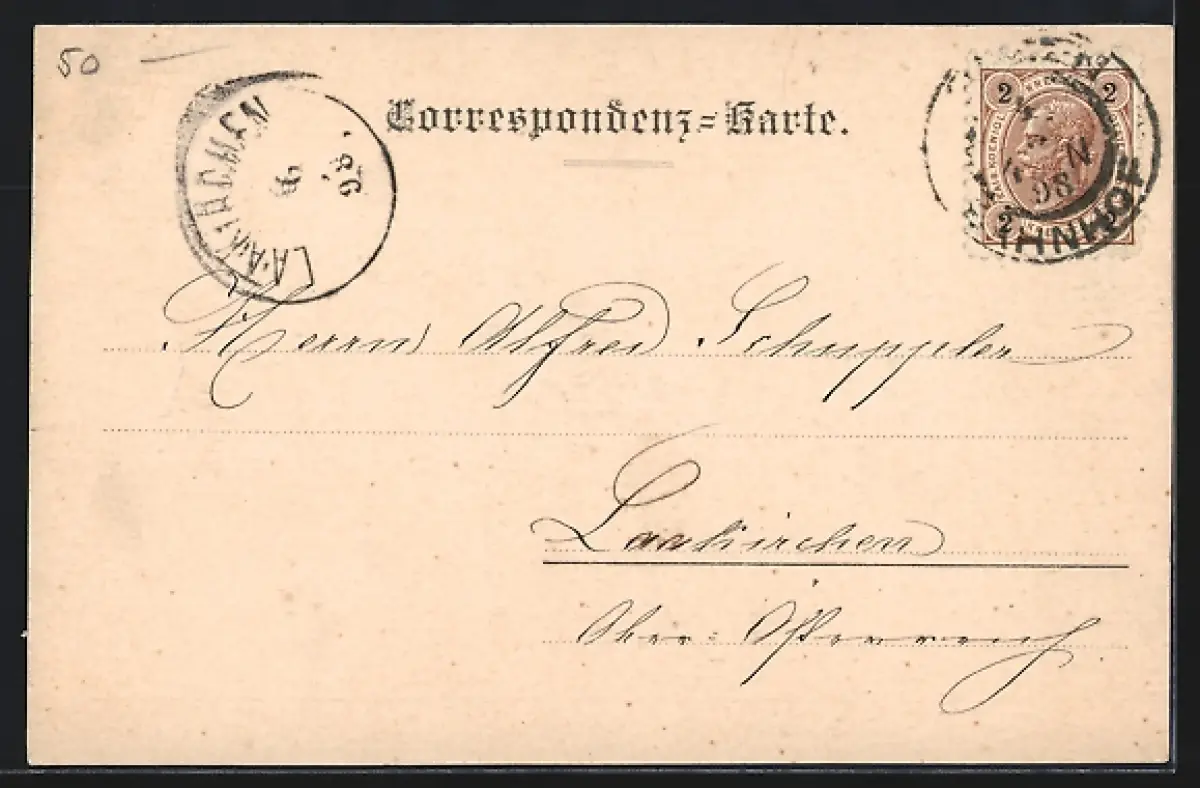 50
Correspondenz=Karte.
LAAKIRCHEN
98
2 2
2
98 N
BAHNHOF
Herrn Alfred Schuppler
Laakirchen
Ober-Österreich